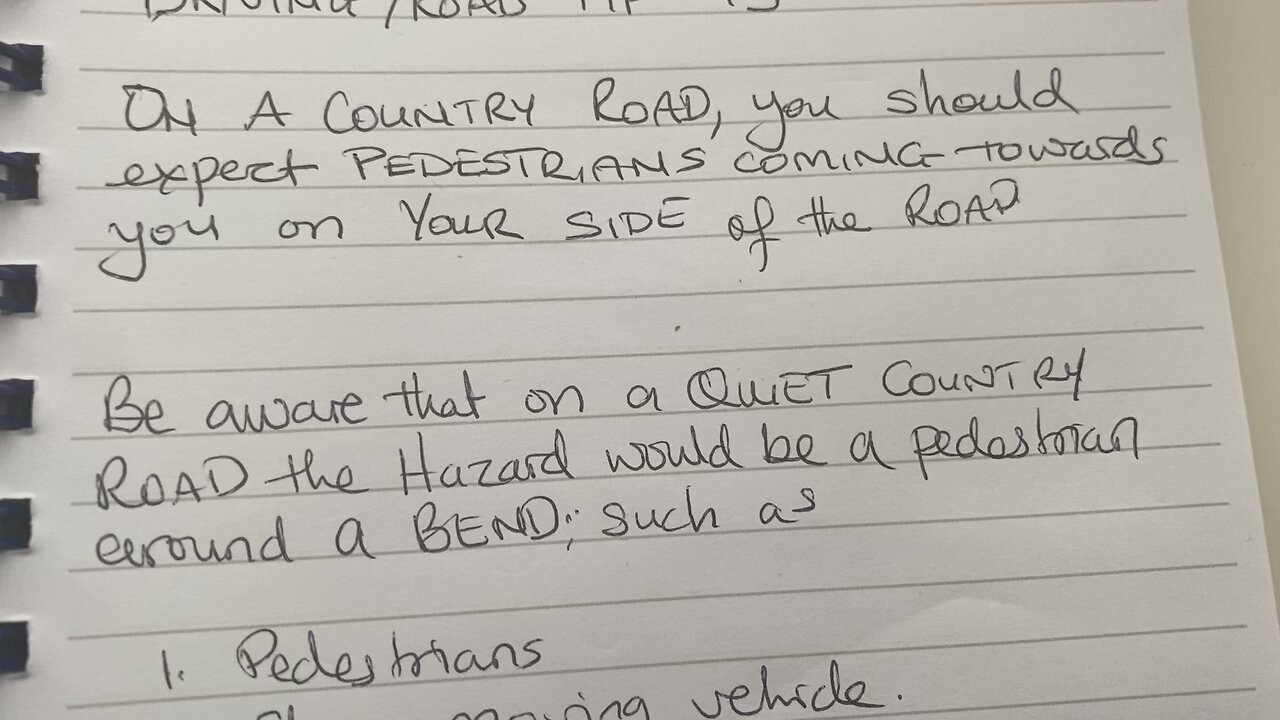 DRIVING/ROAD
ON A COUNTRY ROAD, you should
expect PEDESTRIANS COMING towards
you on YOUR SIDE of the ROAD
Be aware that on a QUIET COUNTRY
ROAD the Hazard would be a pedestrian
around a BEND; such as
1. Pedestrians
moving vehicle.